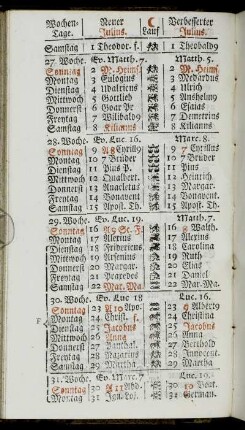 Wochen- Neuer Verbesserter
Tage. Julius. Lauf Julius.
Samstag 1 Theodor. f. 1 Theobald
27. Woche. Ev. Matth. 7. Matth. 5.
Sonntag 2 M. Heims. 2 M. Heims.
Montag 3 Eulogius 3
Dienstag 4 Udalricus 4 Ulrich
Mittwoch 5 Gottlieb 5 Anshelm
Donnerst 6 Goar Pr. 6 Esaias
Freytag 7 Willibald 7 Demetrius
Samstag 8 Kilianus 8 Kilianus
28. Woche. Ev. Luc. 16. Marc. 8.
Sonntag 9 9 7 Cyrillus
Montag 10 7 Brüder 10 7 Brüder
Dienstag 11 Pius P. 11 Pius
Mittwoch 12 12 Heinrich
Donnerst 13 Anacletus 13 Margar.
Freytag 14 Bonavent. 14 Bonavent.
Samstag 15 Apost. Th. 15 Apost. Th.
29. Woche. Ev. Luc. 19. Matth. 7.
Sonntag 16 16 8 Walth.
Montag 17 Alexius 17 Alexius
Dienstag 18 Fridericus 18 Carolina
Mittwoch 19 Arsenius 19 Ruth
Donnerst 20 Margar. 20 Elias
Freytag 21 Praxedes 21 Daniel
Samstag 22 Mar. Ma. 22 Mar. Ma.
30. Woche. Ev. Luc 18 Luc. 16.
Sonntag 23 A 10 Apo. 23 9 Alberty
Montag 24 Christ. f. 24 Christina
Dienstag 25 Jacobus 25 Jacobus
Mittwoch 26 Anna 26 Anna
Donnerst 27 Panthal. 27 Berthold
Freytag 28 Nazarius 28 Innocent.
Samstag 29 Martha 29 Martha
31. Woche. Ev. Marc. 7. Luc. 19.
Sonntag 30 A 11 Abd. 30 10
Montag 31 Ign. Loj. 31 German.